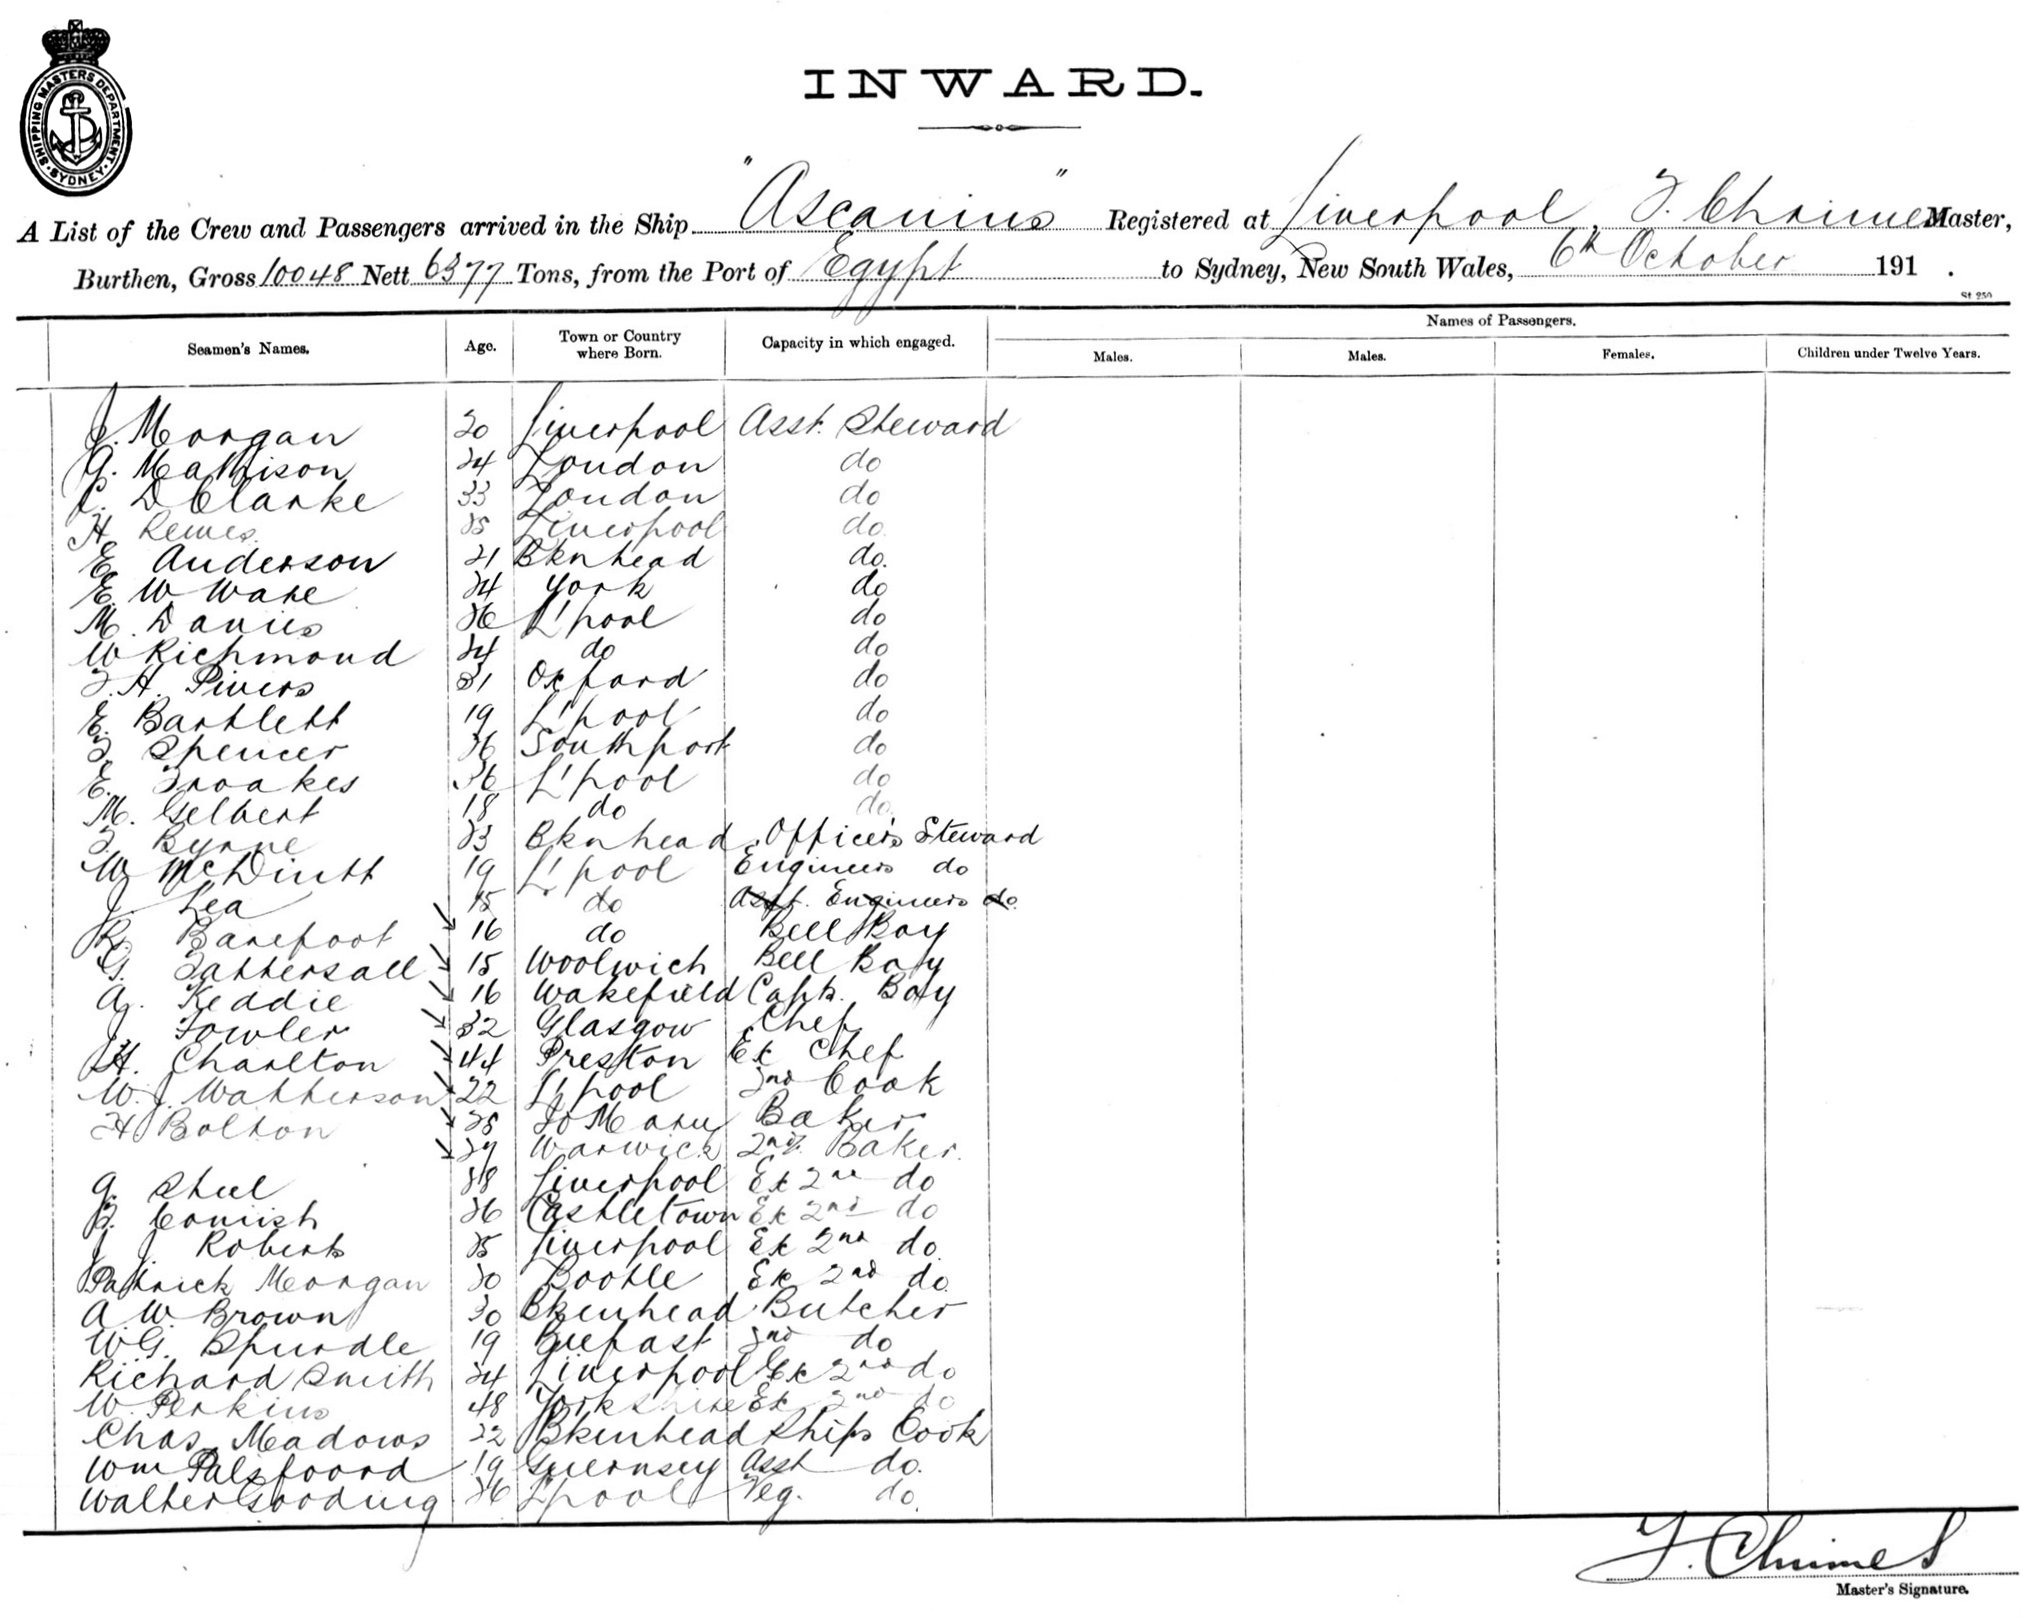 SHIPPING MASTERS DEPARTMENT · SYDNEY ·
INWARD.
A List of the Crew and Passengers arrived in the Ship "Ascanius" Registered at Liverpool, F. Chrimes Master,
Burthen, Gross 10048 Nett 6377 Tons, from the Port of Egypt to Sydney, New South Wales, 6th October 191 .
St 250
Seamen's Names. Age. Town or Country where Born. Capacity in which engaged. Names of Passengers.
Males. Males. Females. Children under Twelve Years.
J. Morgan 20 Liverpool Asst. Steward
G. Mathison 24 London do
C. D Clarke 33 London do
H. 25 Liverpool do.
E. Anderson 21 Bknhead do.
E. W Ware 24 York do
M. Davies 26 L'pool do
W Richmond 24 do do
F. H. Pivers 31 Oxford do
E. Bartlett 19 L'pool do
F. Spencer 26 Southport do
E. Froakes 26 L'pool do
M. Gelbert 18 do do.
F. Byrne 23 Bknhead Officers Steward
W. 19 L'pool Engineers do
J. Lea 15 do Asst. Engineers do.
R. Barefoot 16 do Bell Boy
G. Tattersall 15 Woolwich Bell Boy
A. Keddie 16 Wakefield Capts. Boy
J Fowler 32 Glasgow Chef
H. Charlton 44 Preston Ex Chef
W. J. Watterson 22 L'pool 2nd Cook
H Bolton 28 Baker
Warwick 2nd Baker.
G. Steel 28 Liverpool Ex 2nd do
Cornish 26 Castletown Ex 2nd do
J J Roberts 25 Liverpool Ex 2nd do.
Patrick Morgan 20 Bootle Ex 2nd do.
A. W. Brown 30 Bkenhead Butcher
W. G. Spurdle 19 Belfast 2nd do
Richard Smith 24 Liverpool Ex 2nd do
W. Perkins 48 Yorkshire Ex 2nd do
Chas. Meadows 22 Bkenhead Ships Cook
Wm Palsfoord 19 Guernsey Asst do.
Walter Gooding 26 L'pool Veg. do.
F. Chrimes
Master's Signature.